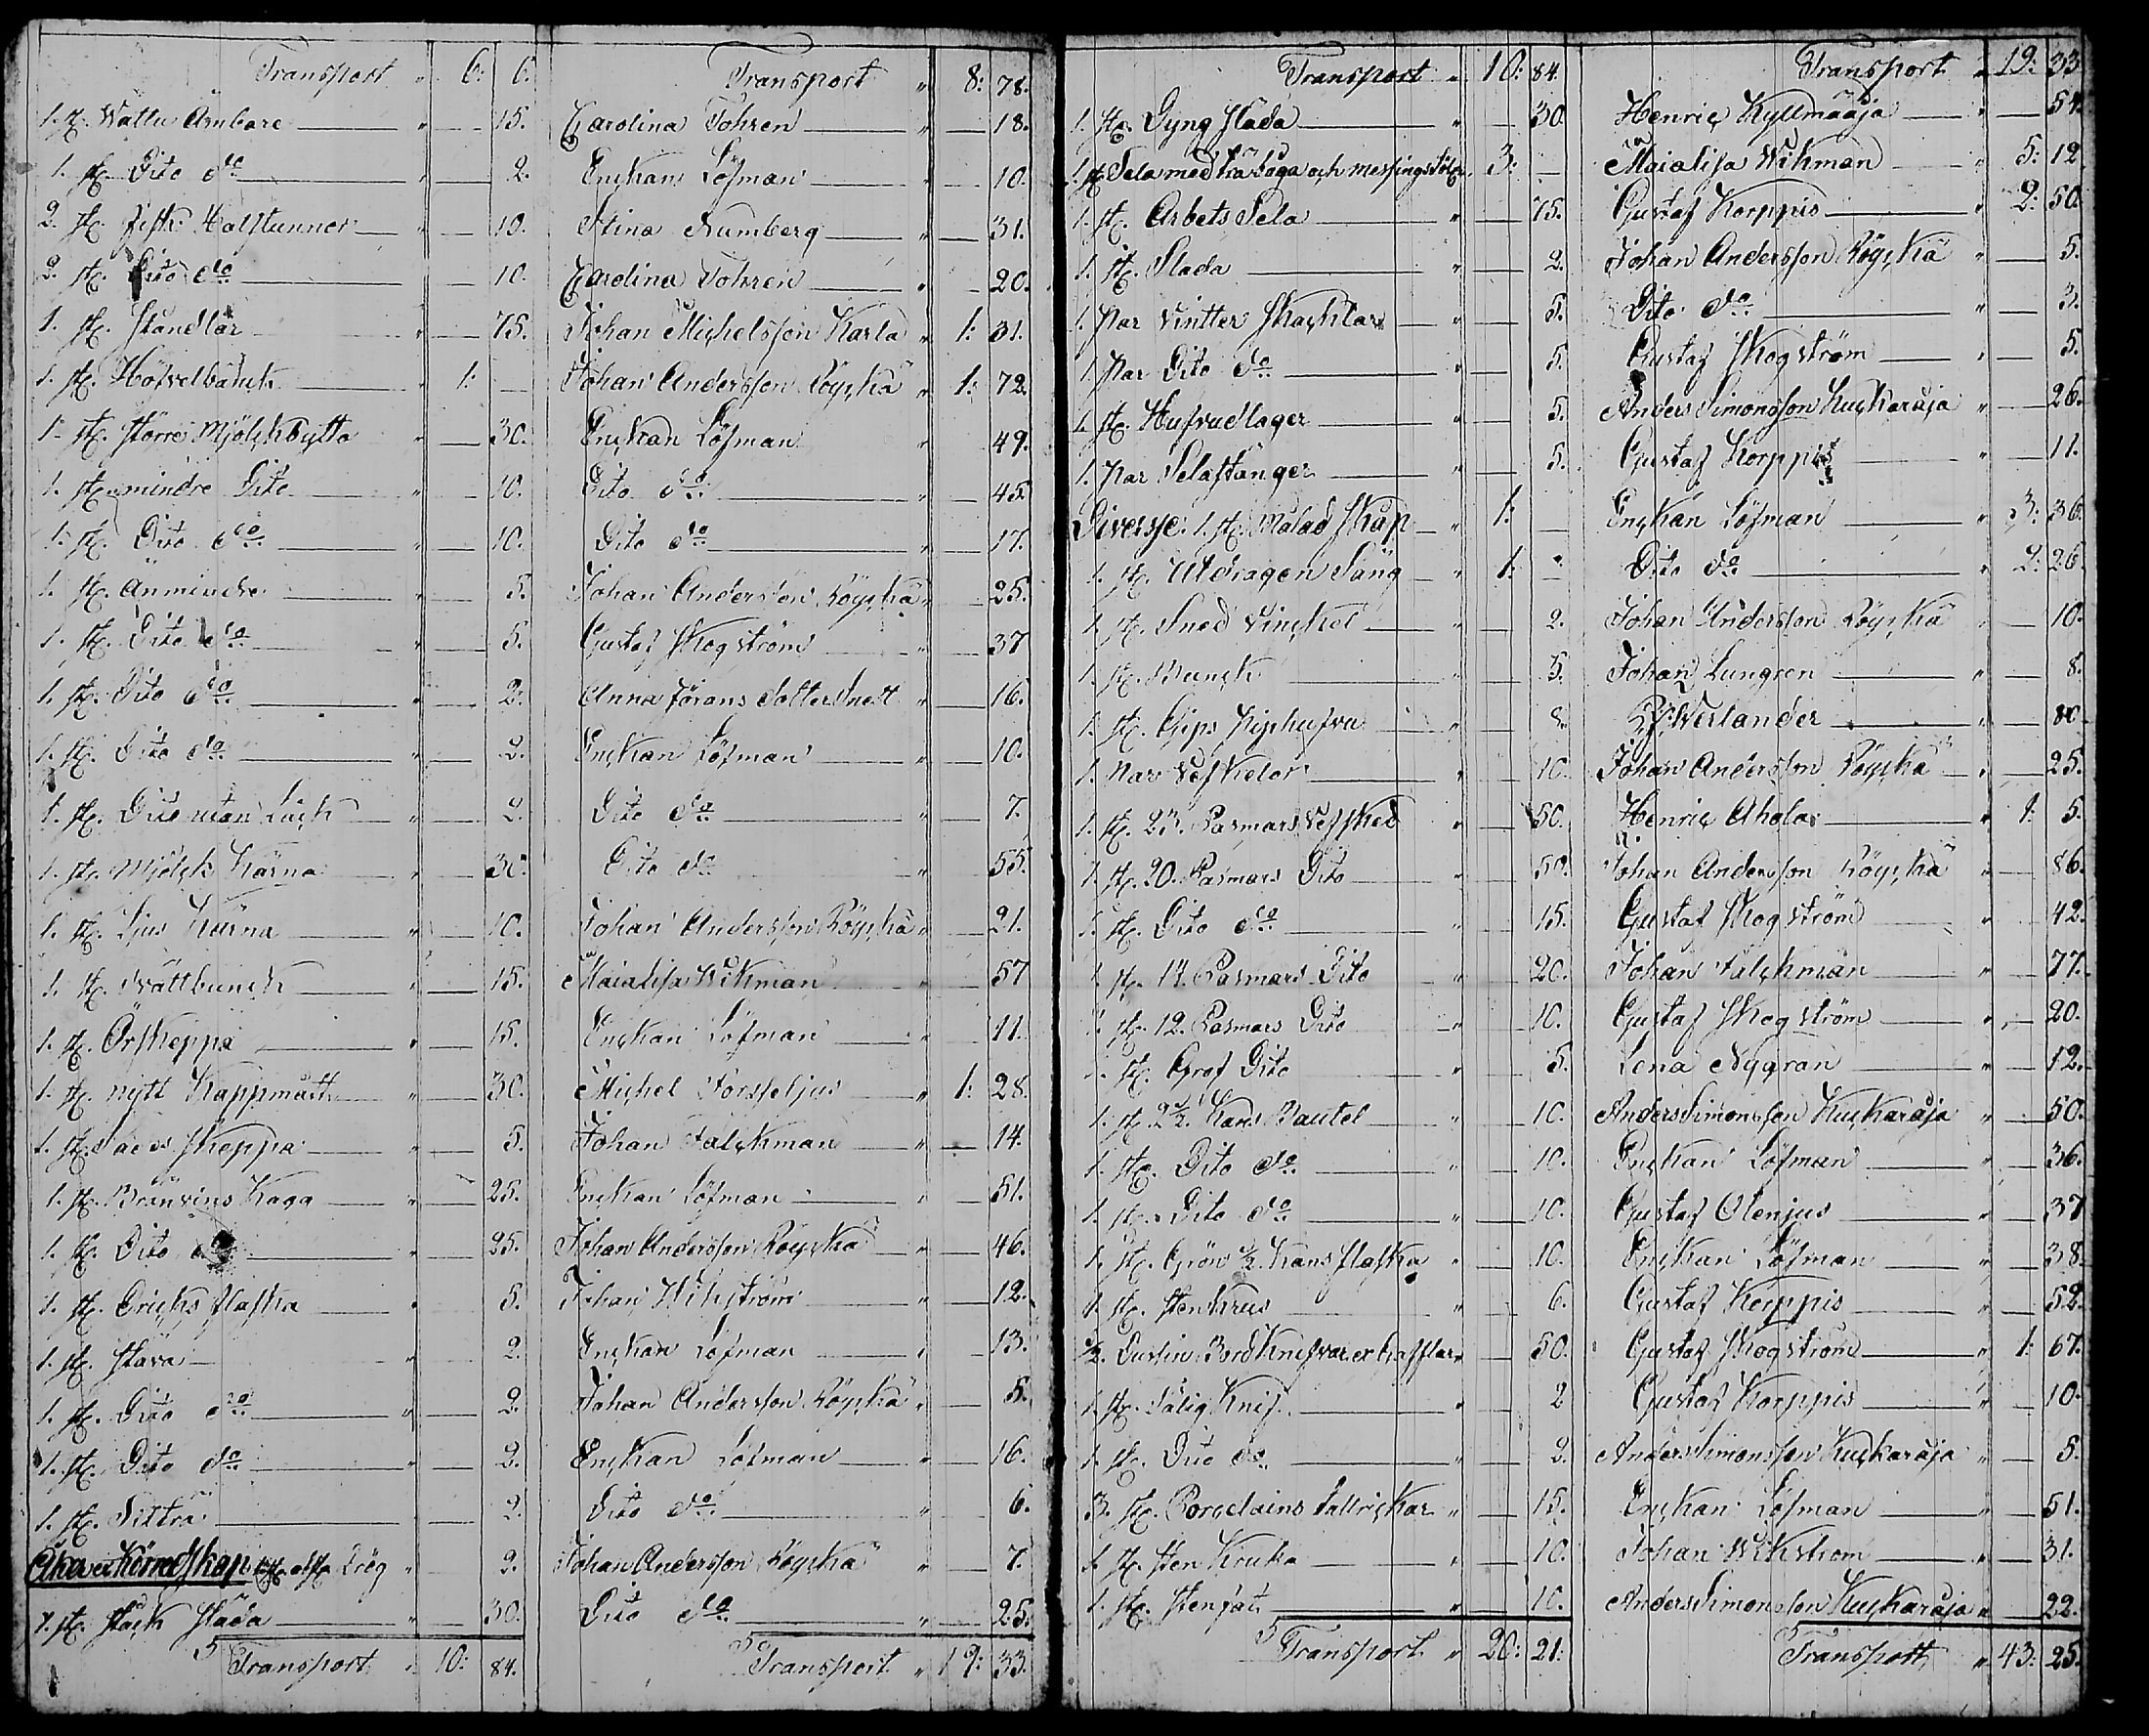 Transport " 6: 6. Transport " 8: 78.
1. st. Vattu Ämbare " 15. Carolina Tohren " 18.
1. st. Dito do " 2. Enckan Löfman " 10.
2. st. fisk Halftunnor " 10. Stina Rumberg " 31.
2. st. Dito do " 10. Carolina Tohren " 20.
1. st. Standlår " 75. Johan Michelsson Karla " 1: 31.
1. st. Höfvelbänk " 1: Johan Andersson Röyckä " 1: 72.
1. st. större Mjölckbytta " 30. Enckan Löfman " 49.
1. st. mindre Dito " 10. Dito do " 45.
1. st. Dito do " 10. Dito do " 17.
1. st. änmindre " 5. Johan Andersson Röyckä " 25.
1. st. Dito do " 5. Gustaf Skogström " 37
1. st. Dito do " 2. Anna Jörans Dotter " 16.
1. st. Dito do " 2. Enckan Löfman " 10.
1. st. Dito utan Låck " 2. Dito do " 7.
1. st. Mjölck Kärna " 30. Dito do " 55.
1. st. Ljus Kärna " 10. Johan Andersson Röyckä " 21.
1. st. Tvättbunck " 15. Maialisa Wikman " 57
1. st. Öskeppa " 15. Enckan Löfman " 11.
1. st. nytt Kappmått " 30. Michel Forsseljus " 1: 28.
1. st. Sades Skeppa " 5. Johan Falckman " 14.
1. st. Bränvins Kaga " 25. Enckan Löfman " 51.
1. st. Dito do " 25. Johan Andersson Röyckä " 46.
1. st. Dricks flaska " 5. Johan Wikström " 12.
1. st. stäva " 2. Enckan Löfman " 13.
1. st. Dito do " 2. Johan Andersson Röyckä " 5.
1. st. Dito do " 2. Enckan Löfman " 16.
1. st. Tittra " 2. Dito do " 6.
Åke et Köredskap 1. st. Drög " 2. Johan Andersson Röyckä " 7.
1. st. stäck släda " 30. Dito do " 25.
Transport " 10: 84. Transport " 19: 33.
Transport " 10: 84. Transport " 19: 33
1. st. Dyng släda " 30. Henric Kyllmäaja " 54.
1. st. Sela med träboga och messings " 3: Maialisa Wikman " 5: 12
1. st. Arbets Sela " 75. Gustaf Korppis " 2: 50.
1. st. Slada " 2. Johan Andersson Röyckä " 5.
1. par vintter Skacklar " 5. Dito do " 3.
1. par Dito do " 5. Gustaf Skogström " 5.
1. st. Hufvudlager " 5. Anders Simonsson Kuckaraja " 26.
1. par Selastänger " 5. Gustaf Korppis " 11.
Diversse: 1. st. Målad Skåp " 1: Enckan Löfman " 3: 36.
1. st. Utdragen Säng " 1: Dito do " 2: 26.
1. st. Sned Vinckel " 2. Johan Andersson Röyckä " 10.
1. st. Bunck " 5. Johan Lungren " 8.
1. st. Gips " 8. Werlander " 80
1. par Vefskedor " 10. Johan Andersson Röyckä " 25.
1. st. 23. Pasmars Vefsked " 50. Henric Ahola " 1: 5.
1. st. 20. Pasmars Dito " 50. Johan Andersson Röyckä " 86.
1. st. Dito do " 15. Gustaf Skogström " 42.
1. st. 14. Pasmars Dito " 20. Johan Falckman " 77.
1. st. 12. Pasmars Dito " 10. Gustaf Skogström " 20.
1. st. Grof Dito " 5. Lena Nygran " 12.
1. st. 2½. Kans Bautel " 10. Anders Simonsson Kuckaraja " 50.
1. st. Dito do " 10. Enckan Löfman " 36.
1. st. Dito do " 10. Gustaf Olenjus " 37
1. st. Grön ½. Kans flaska " 10. Enckan Löfman " 38
1. st. stenkrus " 6. Gustaf Korppis " 52.
½. Dussin Bord Knifvar et Gafflar " 50. Gustaf Skogström " 1: 67.
1. st. Tälig Knif " 2 Gustaf Korppis " 10.
1. st. Dito do " 2. Anders Simonsson Kuckaraja " 5.
3. st. Porclains Tallrickar " 15. Enckan Löfman " 51.
1. st. sten Kruka " 10. Johan Wikström " 31.
1. st. stenfat " 10. Anders Simonsson Kuckaraja " 22.
Transport " 20: 21. Transport " 43: 25.